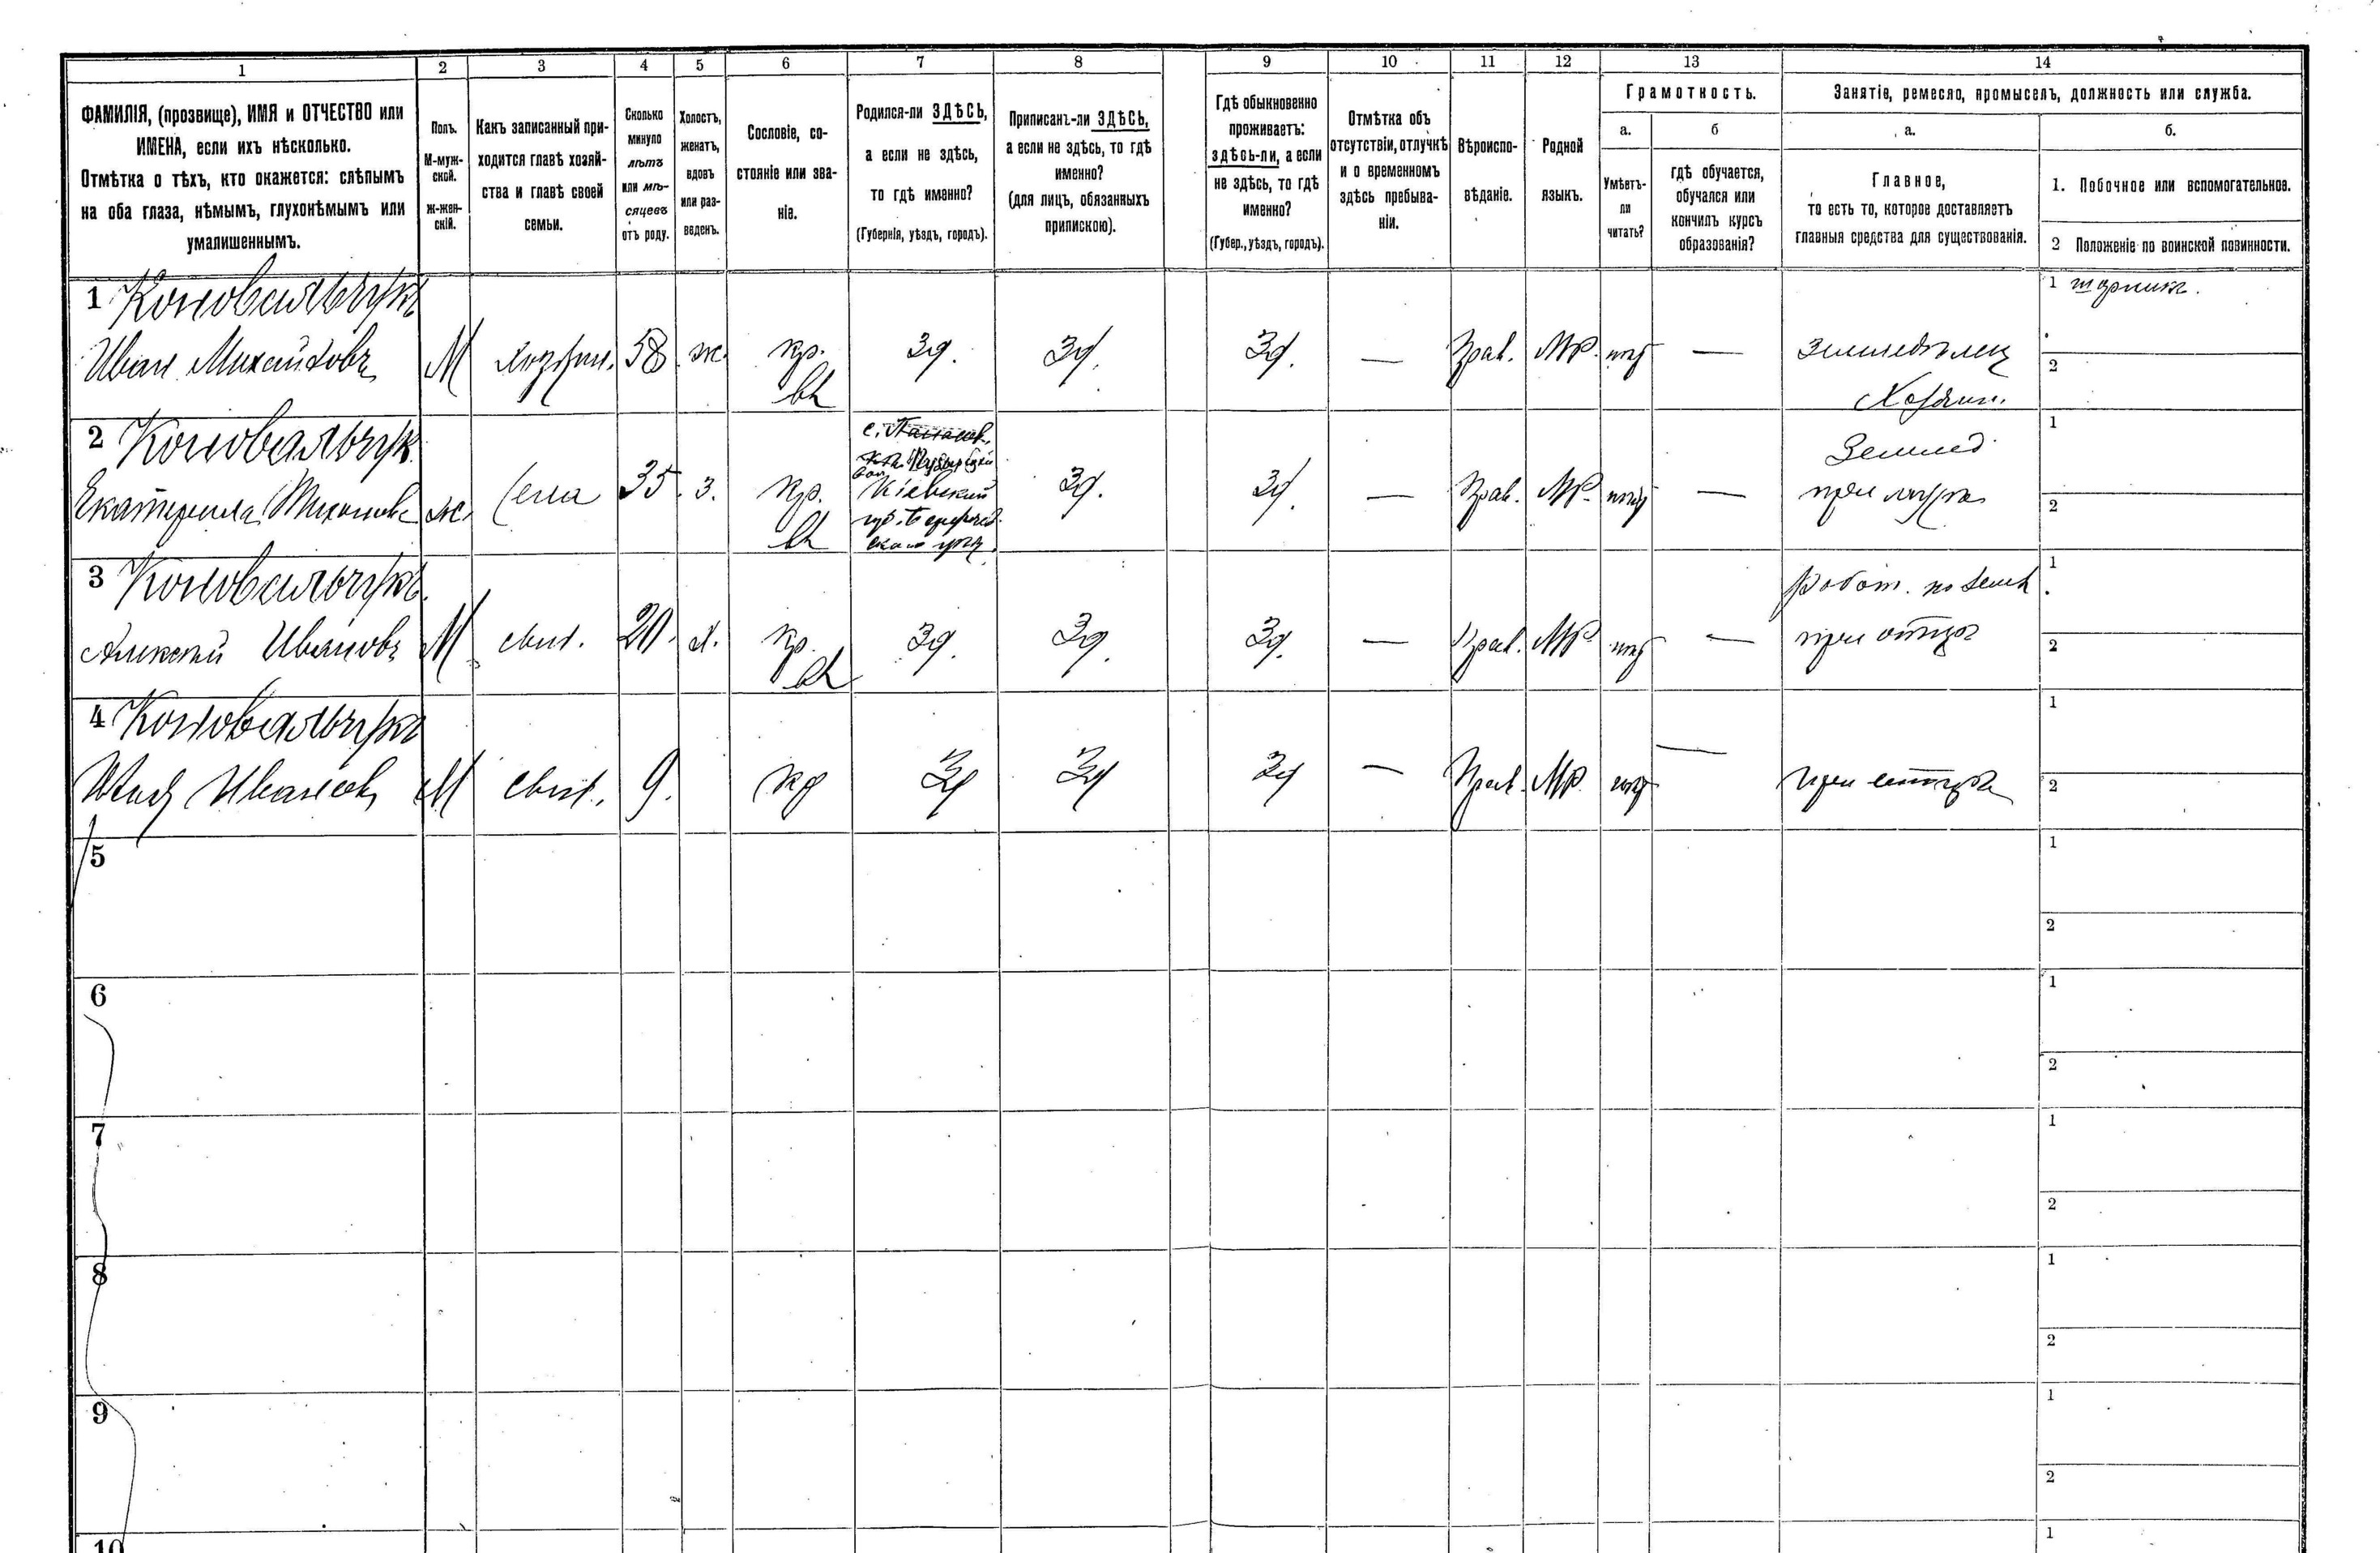 1 2 3 4 5 6 7 8 9 10 11 12 13 14
ФАМИЛІЯ, (прозвище), ИМЯ и ОТЧЕСТВО или
ИМЕНА, если ихъ нѣсколько.
Отмѣтка о тѣхъ, кто окажется: слѣпымъ
на оба глаза, нѣмымъ, глухонѣмымъ или
умалишеннымъ.
Полъ.
М-муж-
ской.
ж-жен-
скій.
Какъ записанный при-
ходится главѣ хозяй-
ства и главѣ своей
семьи.
Сколько
минуло
лѣтъ
или мѣ-
сяцевъ
отъ роду.
Холостъ,
женатъ,
вдовъ
или раз-
веденъ.
Сословіе, со-
стояніе или зва-
ніе.
Родился-ли ЗДѢСЬ,
а если не здѣсь,
то гдѣ именно?
(Губернія, уѣздъ, городъ).
Приписанъ-ли ЗДѢСЬ,
а если не здѣсь, то гдѣ
именно?
(для лицъ, обязанныхъ
припискою).
Гдѣ обыкновенно
проживаетъ:
здѣсь-ли, а если
не здѣсь, то гдѣ
именно?
(Губер., уѣздъ, городъ).
Отмѣтка объ
отсутствіи, отлучкѣ
и о временномъ
здѣсь пребыва-
ніи.
Вѣроиспо-
вѣданіе.
Родной
языкъ.
Грамотность.
а.
Умѣетъ-
ли
читать?
б
гдѣ обучается,
обучался или
кончилъ курсъ
образованія?
Занятіе, ремесло, промыселъ, должность или служба.
а.
Главное,
то есть то, которое доставляетъ
главныя средства для существованія.
б.
1. Побочное или вспомогательное.
2 Положеніе по воинской повинности.
1 Коновальчукъ
Иванъ Михайловъ М хозяин. 58 ж. кр. Зд. Зд. Зд. — Прав. МР. нѣт — земледѣлец
Хозяин.
1
2
2 Коновальчук
Екатерина ж. жена 35. з. кр. Зд. Зд. — Прав. МР. нѣт —
Кіевский
Землед
при мужѣ
1
2
3 Коновальчукъ
Алексѣй Ивановъ М сын. 20. х. кр. Зд. Зд. Зд. — Прав. МР нѣт —
Работ. по земл
при отцѣ
1
2
4 Коновальчукъ
Иванов М сын. 9. кр Зд Зд Зд — Прав. МР. нѣт — при отцѣ
1
2
5
1
2
6
1
2
7
1
2
8
1
2
9
1
2
10
1